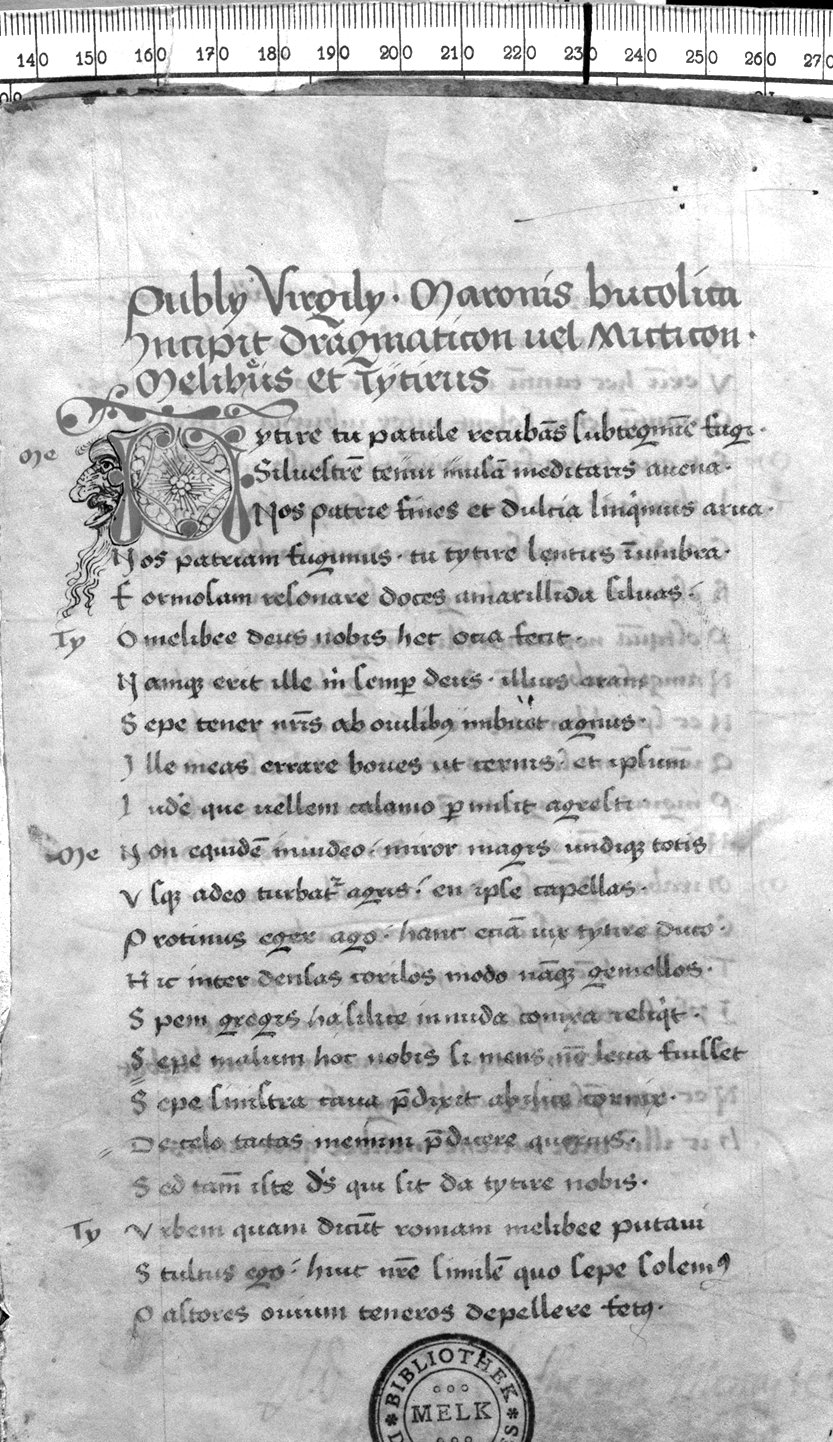 140 150 160 170 180 190 200 210 220 230 240 250 260 270
Publij Virgilij · Maronis bucolica
Incipit dragmaticon uel Micticon ·
Melibeüs et Tÿtirus
Me Tytire tu patule recubãs subtegmĩe fagi ·
Siluestrẽ tenui musã meditaris auena ·
Nos patrie fines et dulcia linqimus arua ·
Nos patriam fugimus · tu tytire lentus ĩ umbra ·
Formosam resonare doces amarillida siluas ·
Ty O melibee deus nobis hec ocia fecit ·
Namqȝ erit ille m̃ semꝑ deus · illius aram
Sepe tener nr̃is ab ouilibꝫ imbuet agnus ·
Ille meas errare boues ut cernis · et ipsum
Ludẽ que uellem calamo ꝑmisit agresti
Me Non equidẽ inuideo · miror magis undiqȝ totis
Vsqȝ adeo turbat᷑ agris · en ipse capellas ·
Protinus eger ago · hanc eciã uix tytire duco ·
Hic inter densas corilos modo nãqȝ gemellos ·
Spem gregis ha silice in nuda conixa reliqit ·
Sepe malum hoc nobis si mens nõ leua fuisset
Sepe sinistra caua p̃dixit ab ilice cornix ·
De celo tactas memini p̃dicere quercus ·
Sed tam̃ iste ds̃ qui sit da tytire nobis ·
Ty Vrbem quam dicũt romam melibee putaui
Stultus ego · huic nr̃e similẽ quo sepe solemꝰ
Pastores ouium teneros depellere fetꝰ ·
BIBLIOTHEK
MELK